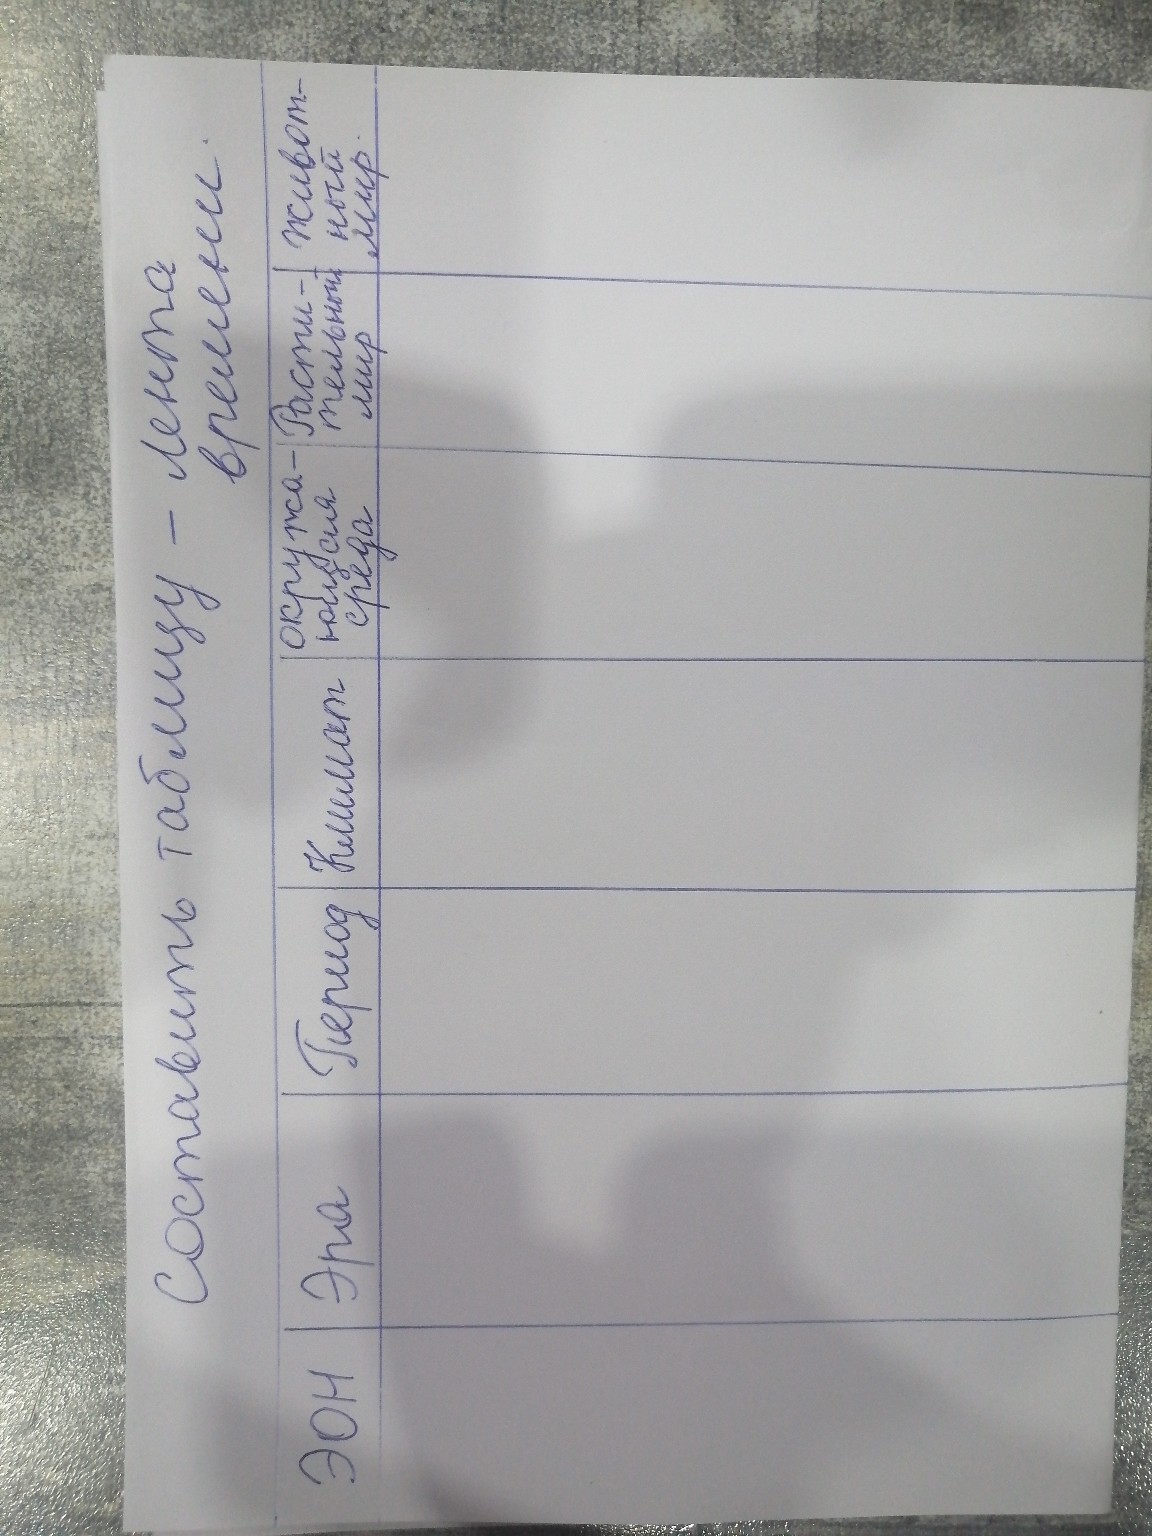 Составить таблицу - лента
времени.
ЭОН
Эра
Период
Климат
окружа-
ющая
среда
Расти-
тельный
мир
Живот-
ный
мир.